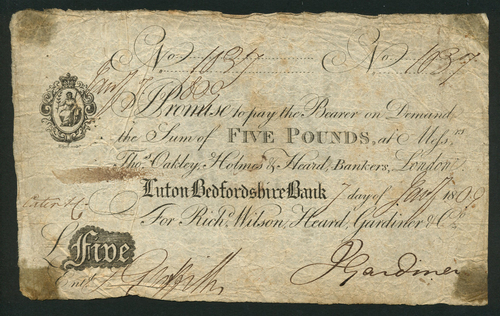 No. 1037 No. 1037
I Promise to pay the Bearer on Demand
the Sum of FIVE POUNDS, at Mess.rs
Tho.s Oakley, Holmes & Heard, Bankers, London
Luton Bedfordshire Bank 7 day of 180
For Rich.d Wilson, Heard, Gardiner & Co.
£ Five
Ent.d J Gardiner